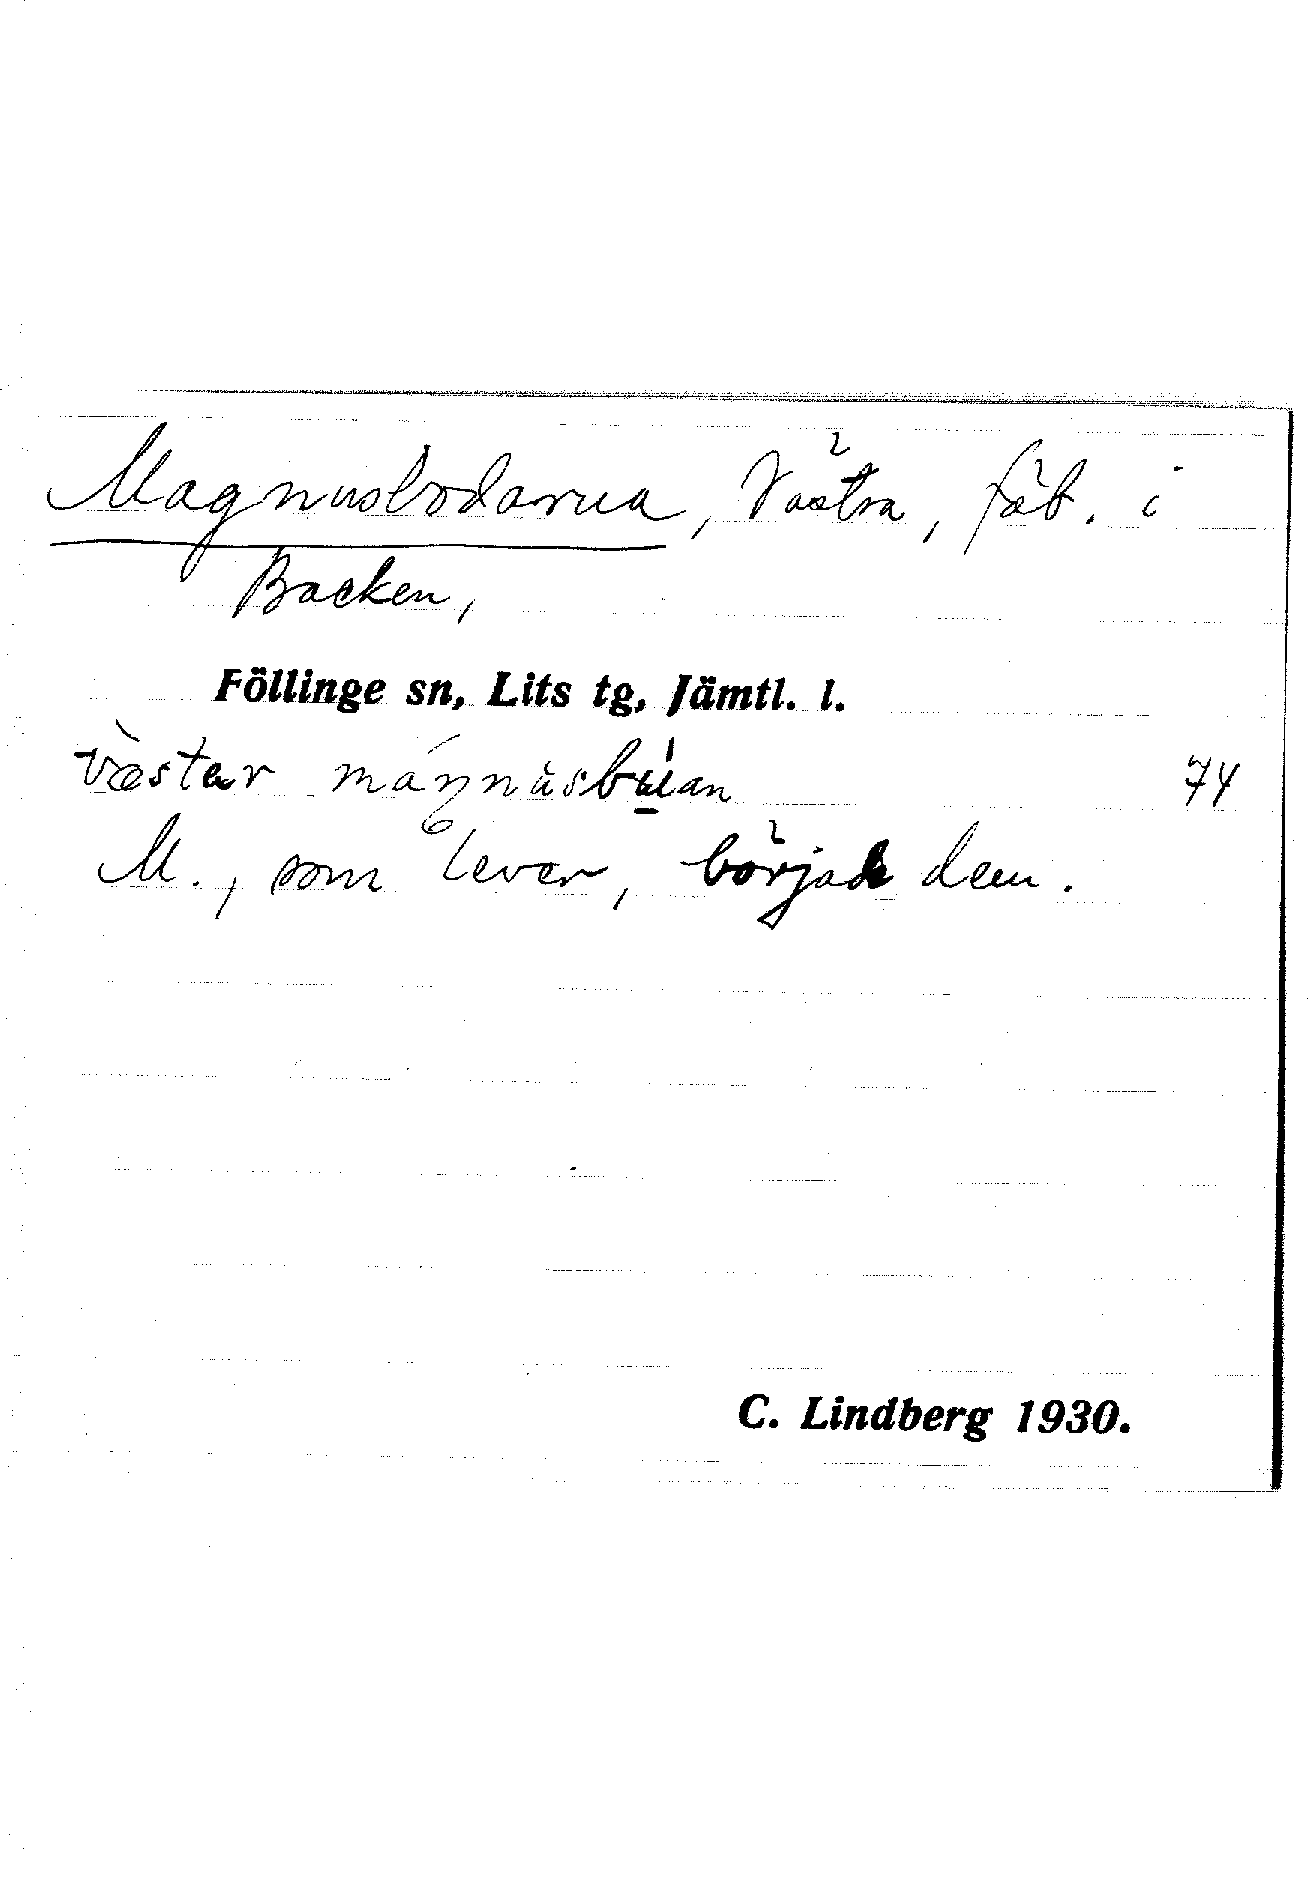 Magnusbodarna, Västra, fäb. i
Backen,
Föllinge sn, Lits tg, Jämtl. l.
væstar máŋnùsbuan 74
M., som lever, började dem.
C. Lindberg 1930.